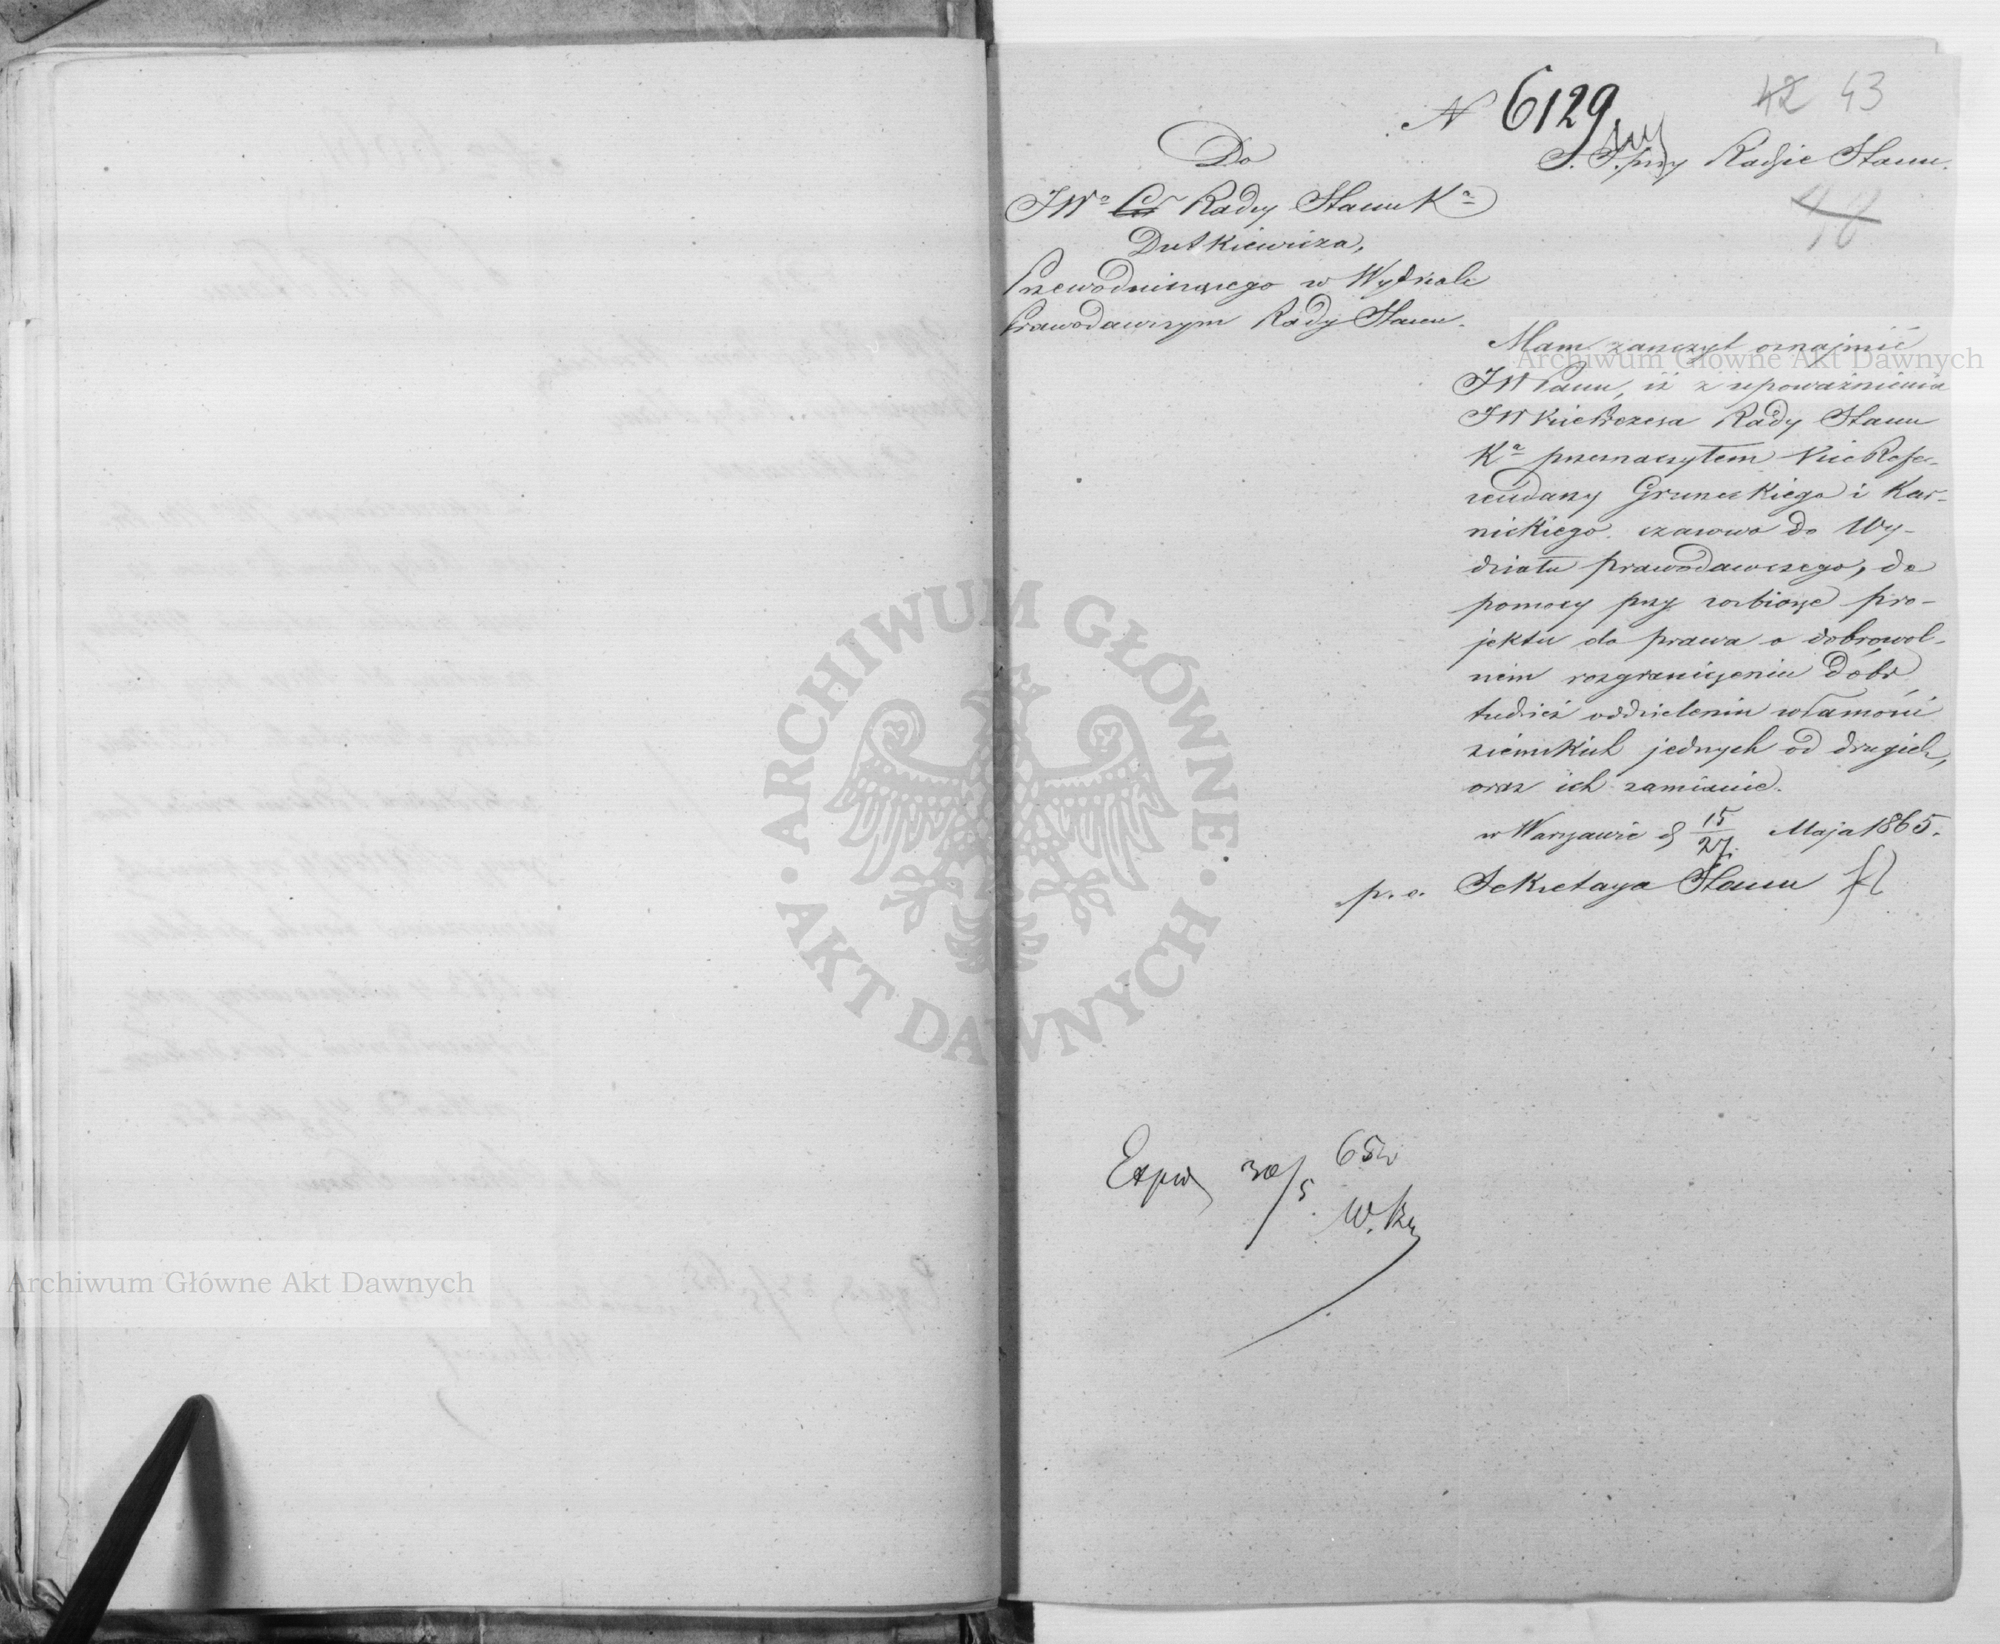 N 6129
42 43
S. S. przy Radzie Stanu.
48
Do
JWo Czł Rady Stanu Ka
Dutkiewicza,
Przewodniczącego w Wydziale
Prawodawczym Rady Stanu.
Mam zaszczyt oznajmić
JW Panu, iż z upoważnienia
JW Vice Prezesa Rady Stanu
Ka przeznaczyłem Vice Refe-
rendarzy Gruneckiego i Kar-
nickiego czasowo do Wy-
działu prawodawczego, do
pomocy przy rozbiorze pro-
jektu do prawa o dobrowol-
nem rozgraniczeniu Dóbr
tudzież oddzieleniu własności
ziemskich jednych od drugich,
oraz ich zamianie.
w Warszawie d 15/27 Maja 1865.
p. o. Sekretarza Stanu
Exped 30/5 65
Archiwum Główne Akt Dawnych
Archiwum Główne Akt Dawnych
ARCHIWUM GŁÓWNE · AKT DAWNYCH ·